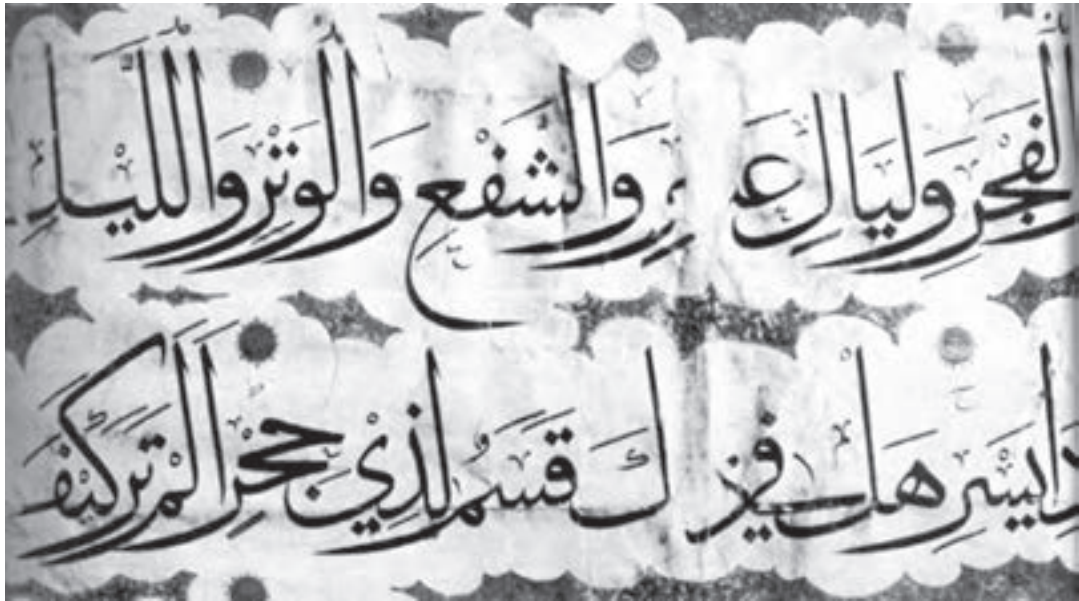 الْفَجْرِ وَلَيَالٍ عَشْرٍ وَالشَّفْعِ وَالْوَتْرِ وَاللَّيْلِ
ذَا يَسْرِ هَلْ فِي ذَلِكَ قَسَمٌ لِذِيْ حِجْرٍ أَلَمْ تَرَ كَيْفَ